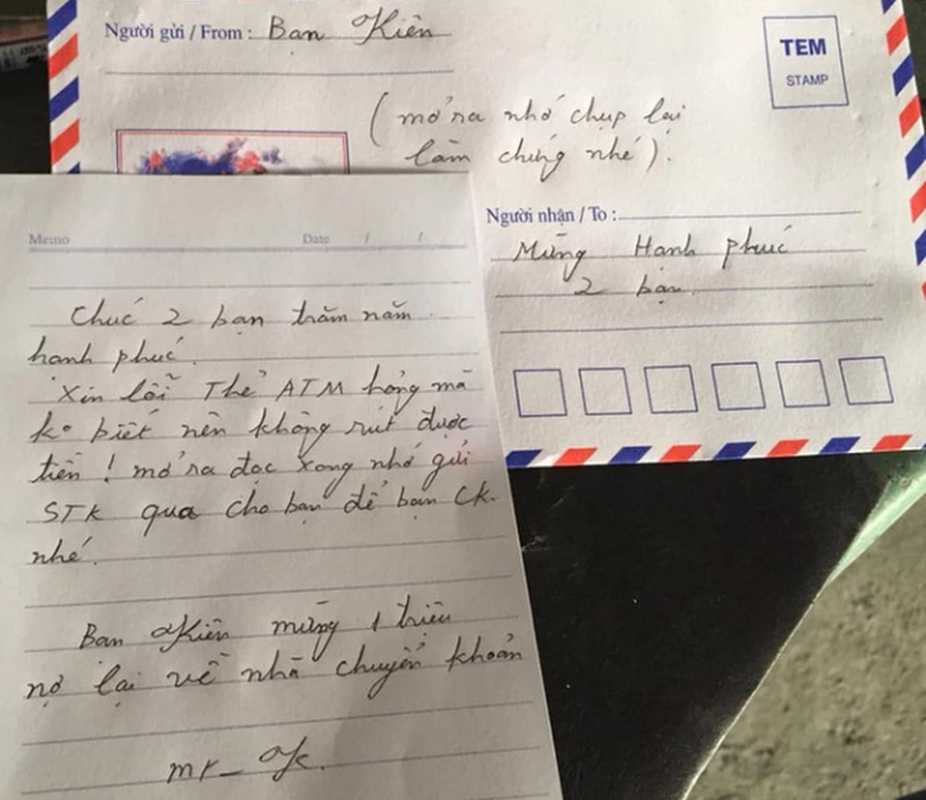 Người gửi / From : Bạn Kiên
TEM
STAMP
( mở ra nhớ chụp lại
làm chứng nhé ).
Người nhận / To :
Mừng Hạnh phúc
2 bạn.
Memo Date / /
Chúc 2 bạn trăm năm
hạnh phúc.
Xin lỗi Thẻ ATM hỏng mà
ko biết nên không rút được
tiền ! mở ra đọc xong nhớ gửi
STK qua cho bạn để bạn CK.
nhé.
Bạn Kiên mừng 1 triệu
nợ lại về nhà chuyển khoản
mr_ K.